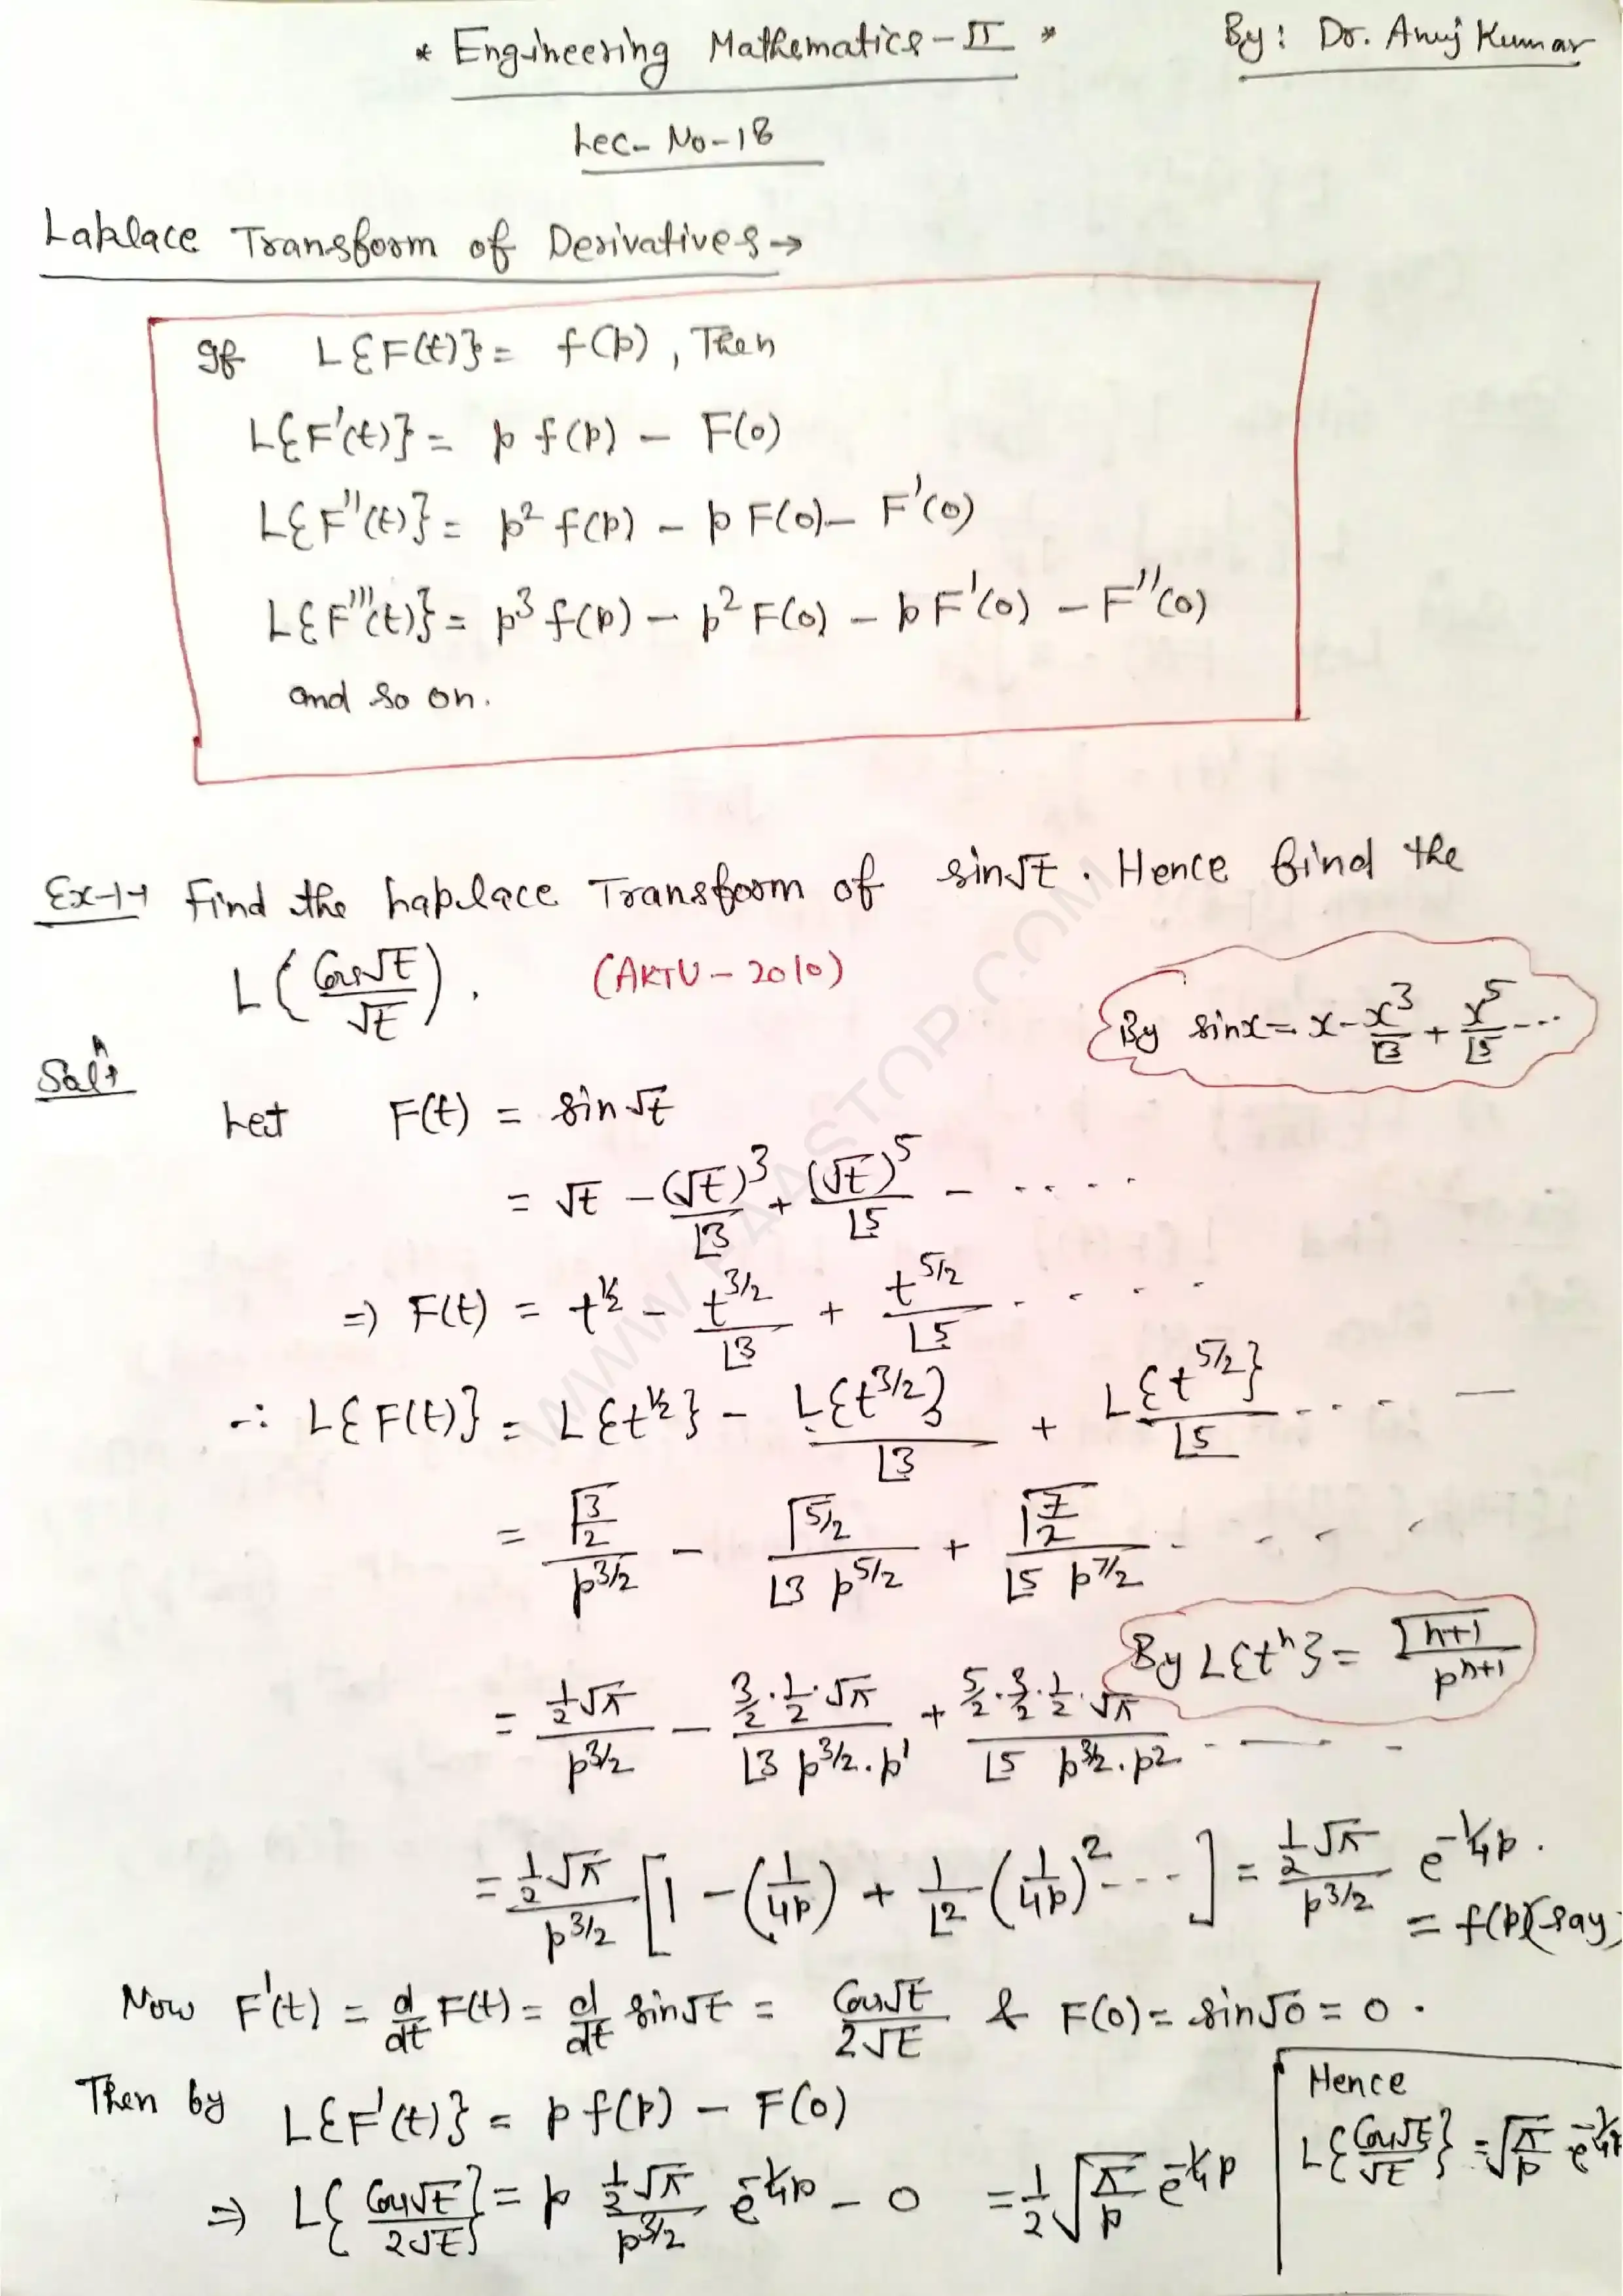 * Engineering Mathematics-II *
By: Dr. Anuj Kumar
Lec- No-18
Laplace Transform of Derivatives→
If L{F(t)} = f(p), Then
L{F'(t)} = p f(p) - F(0)
L{F''(t)} = p² f(p) - p F(0) - F'(0)
L{F'''(t)} = p³ f(p) - p² F(0) - p F'(0) - F''(0)
and so on.
Ex-1→ Find the Laplace Transform of sin√t . Hence find the
L{Cos√t/√t} . (AKTU - 2010)
By sinx = x - x³/⌊3 + x⁵/⌊5 ---
Solⁿ→
Let F(t) = sin√t
= √t - (√t)³/⌊3 + (√t)⁵/⌊5 - ....
⇒ F(t) = t^1/2 - t^3/2/⌊3 + t^5/2/⌊5 . . . .
∴ L{F(t)} = L{t^1/2} - L{t^3/2}/⌊3 + L{t^5/2}/⌊5 . . . . —
= Γ3/2/p^3/2 - Γ5/2/⌊3 p^5/2 + Γ7/2/⌊5 p^7/2 . . . .
By L{tⁿ} = Γn+1/p^n+1
= 1/2 √π/p^3/2 - 3/2 · 1/2 · √π/⌊3 p^3/2 . p¹ + 5/2 · 3/2 · 1/2 · √π/⌊5 p^3/2 . p² . — - -
= 1/2 √π/p^3/2 [1 - (1/4p) + 1/⌊2 (1/4p)² - - - ] = 1/2 √π/p^3/2 e^-1/4p .
= f(p) (say)
Now F'(t) = d/dt F(t) = d/dt sin√t = Cos√t/2√t & F(0) = sin√0 = 0 .
Then by L{F'(t)} = p f(p) - F(0)
⇒ L{Cos√t/2√t} = p 1/2 √π/p^3/2 e^-1/4p - 0 = 1/2 √π/p e^-1/4p
Hence
L{Cos√t/√t} = √π/p e^-1/4p